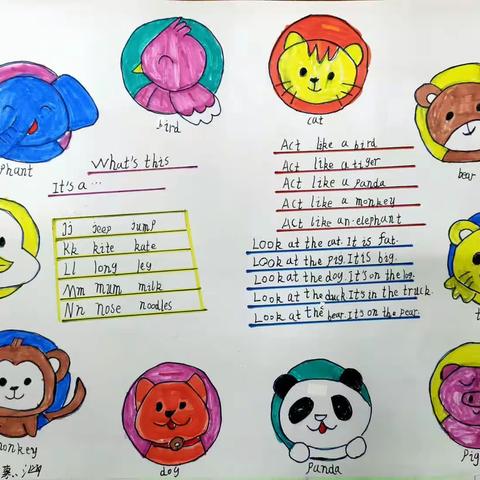 bird
cat
phant
bear
What's this
It's a ...
Act like a bird
Act like a tiger
Act like a panda
Act like a monkey
Act like an elephant
Jj jeep jump
Kk kite kate
Ll long ley
Mm mum milk
Nn nose noodles
Look at the cat. It is fat.
Look at the pig. It is big.
Look at the dog. It's on the log.
Look at the duck. It's in the truck.
Look at the bear. It's on the pear.
t
monkey
dog
panda
Pig